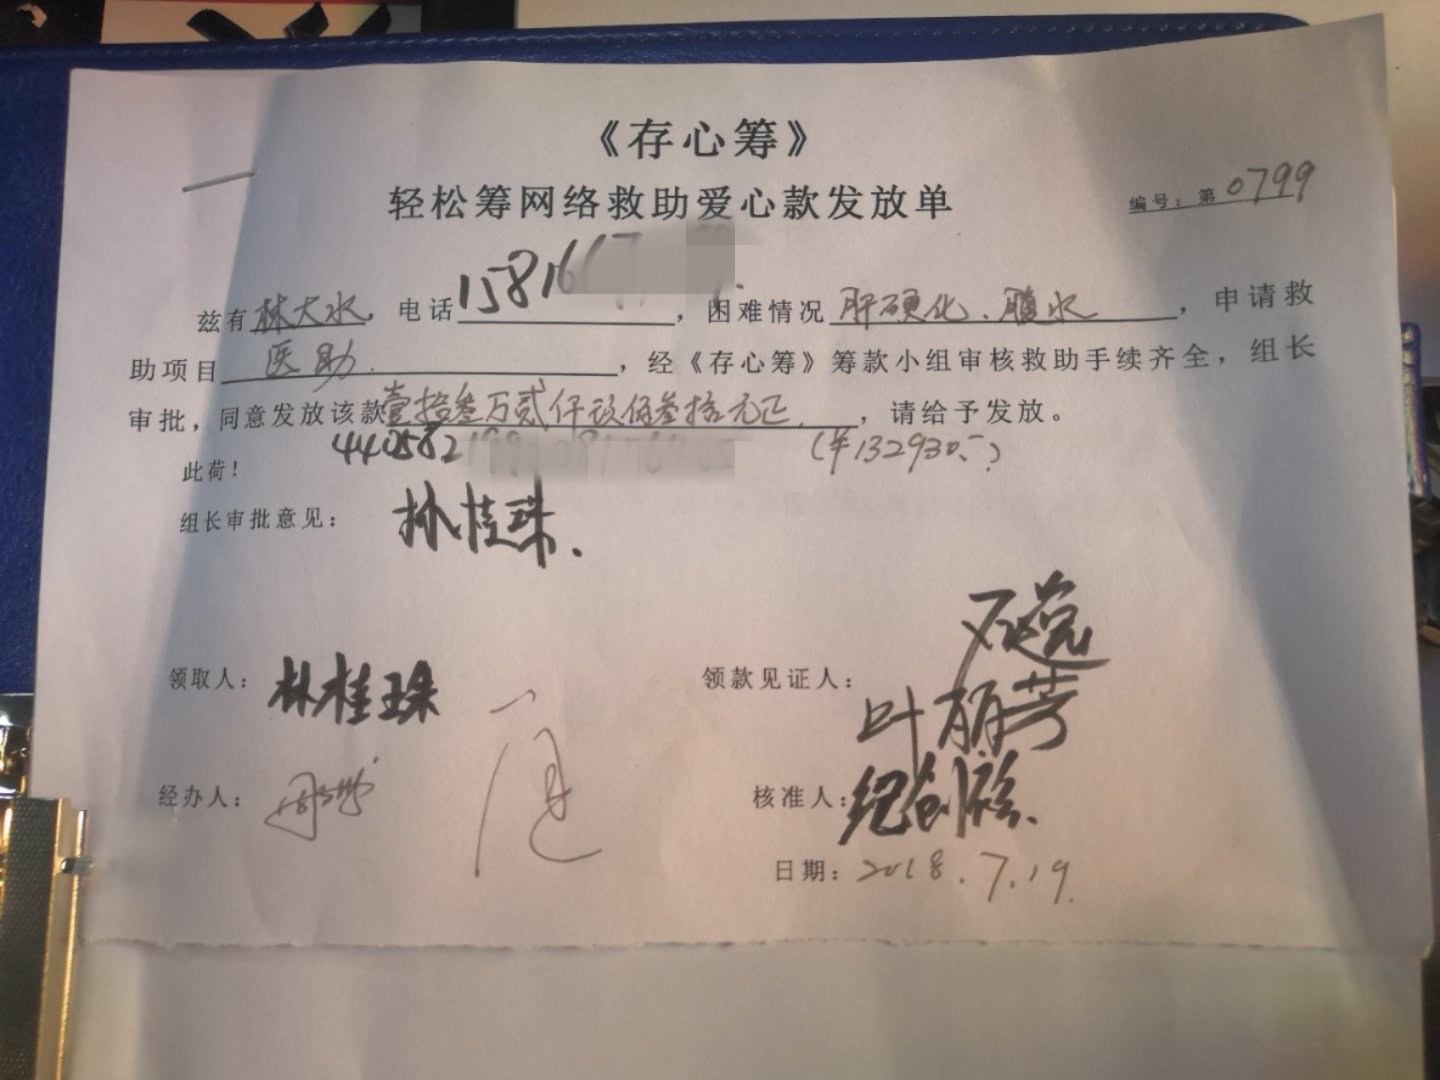 《存心筹》
轻松筹网络救助爱心款发放单
编号：第0799
兹有林大水，电话158166，困难情况肝硬化、腹水，申请救
助项目医助，经《存心筹》筹款小组审核救助手续齐全，组长
审批，同意发放该款壹拾叁万贰仟玖佰叁拾元正，请给予发放。
440582
(¥132930.-)
此荷！
组长审批意见：林桂珠.
领取人：林桂珠
领款见证人：
叶丽芳
经办人：
核准人：
日期：2018.7.19.